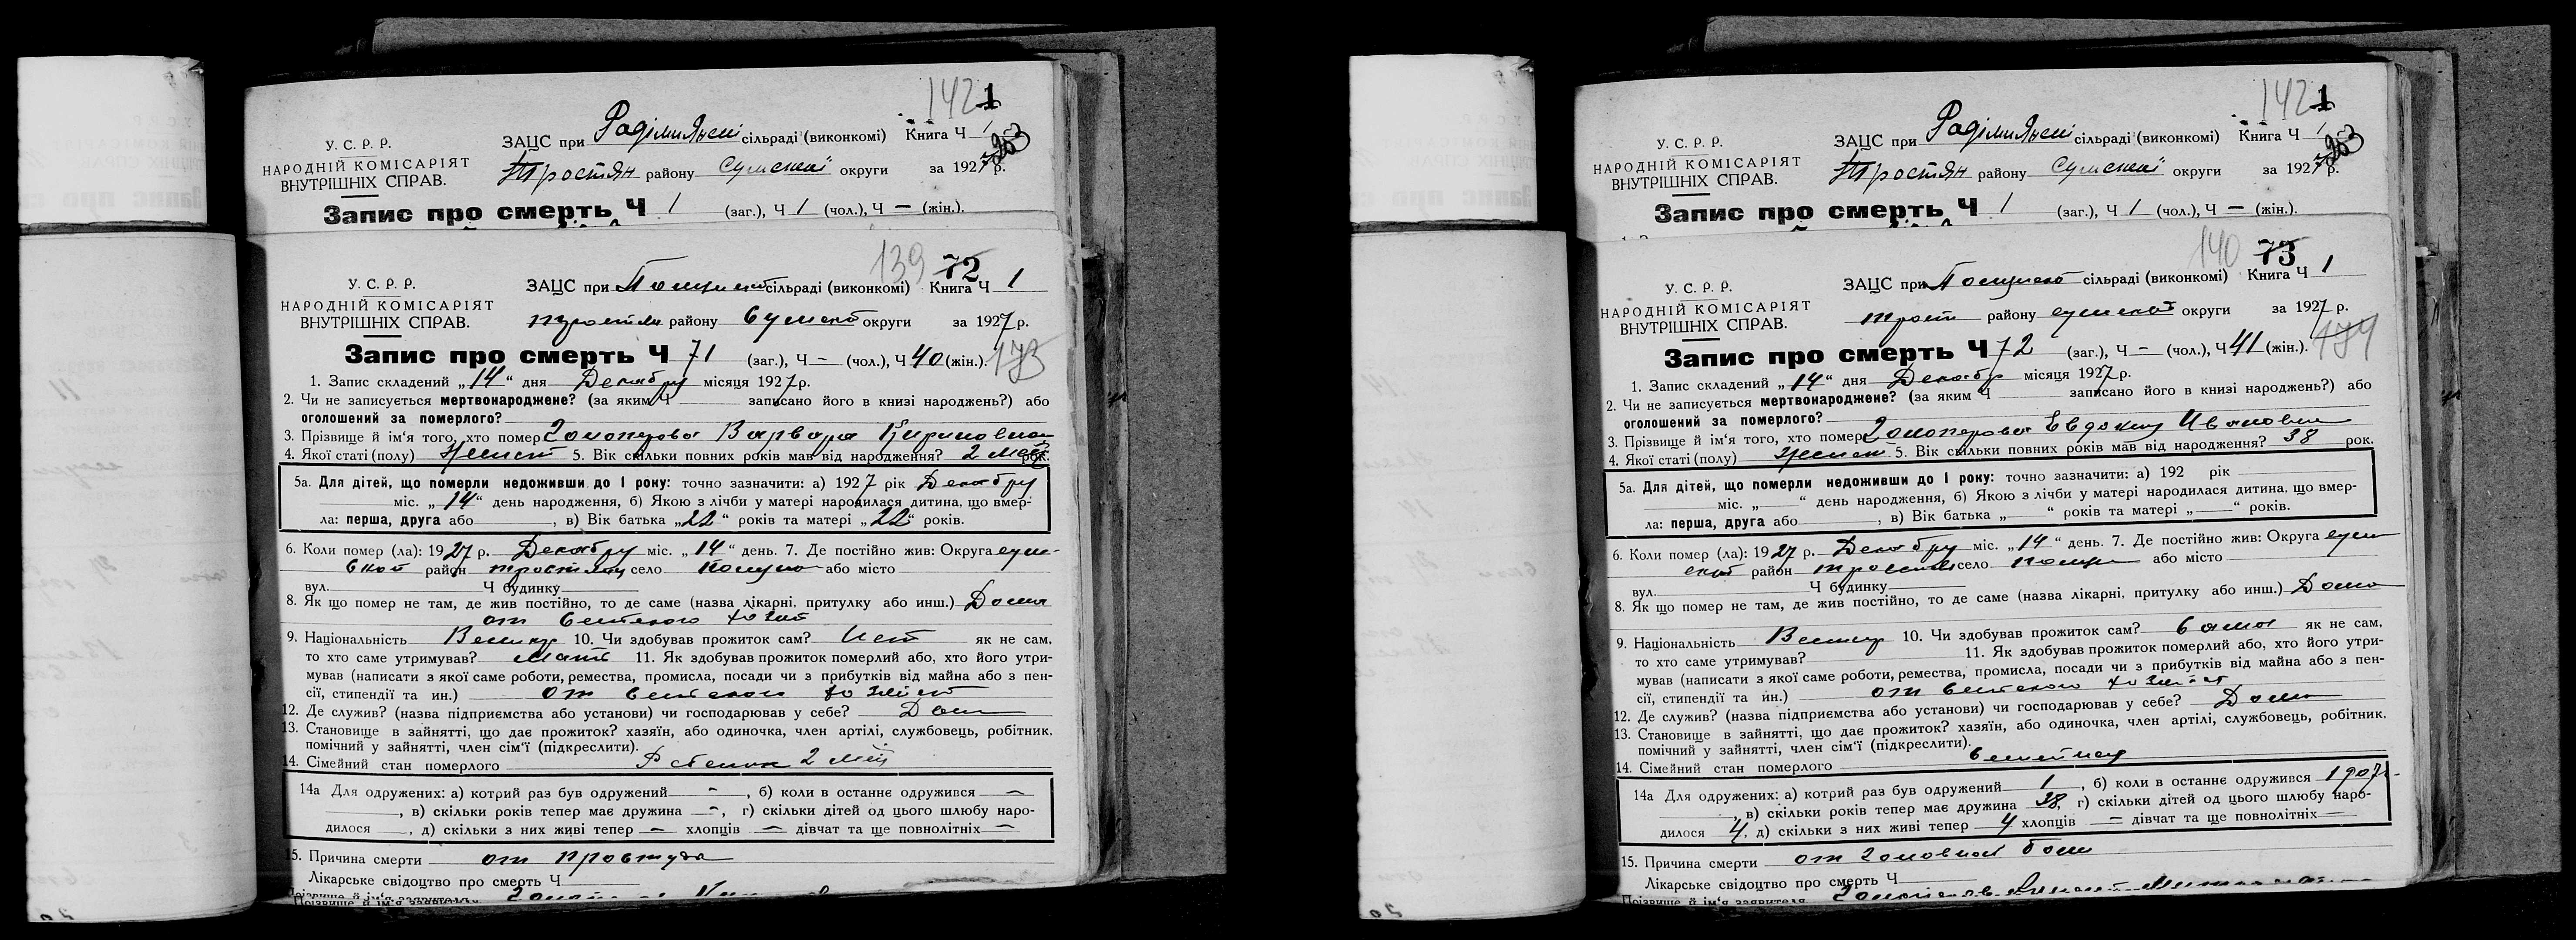 142 1
У. С. Р. Р.
НАРОДНІЙ КОМІСАРІЯТ
ВНУТРІШНІХ СПРАВ.
ЗАЦС при сільраді (виконкомі) Книга Ч 1
Тростян району Сумської округи за 1927 р.
Запис про смерть Ч 1 (заг.), Ч 1 (чол.), Ч — (жін.).
139 72
У. С. Р. Р.
НАРОДНІЙ КОМІСАРІЯТ
ВНУТРІШНІХ СПРАВ.
ЗАЦС при сільраді (виконкомі) Книга Ч 1
Тростян району Сумской округи за 1927 р.
Запис про смерть Ч 71 (заг.), Ч – (чол.), Ч 40 (жін.). 173
1. Запис складений „14“ дня Декабру місяця 1927 р.
2. Чи не записується мертвонароджене? (за яким Ч записано його в книзі народжень?) або
оголошений за померлого?
3. Прізвище й ім‘я того, хто помер Варвара Кириловна
4. Якої статі (полу) 5. Вік скільки повних років мав від народження? 2 рок.
5а. Для дітей, що померли недоживши до 1 року: точно зазначити: а) 1927 рік Декабру
міс. „14“ день народження, б) Якою з лічби у матері народилася дитина, що вмер-
ла: перша, друга або , в) Вік батька „22“ років та матері „22“ років.
6. Коли помер (ла): 1927 р. Декабру міс. „14“ день. 7. Де постійно жив: Округа сум-
ской район село або місто
вул. Ч будинку
8. Як що помер не там, де жив постійно, то де саме (назва лікарні, притулку або инш.) Дома
от
9. Національність 10. Чи здобував прожиток сам? Нет як не сам,
то хто саме утримував? Мать 11. Як здобував прожиток померлий або, хто його утри-
мував (написати з якої саме роботи, ремества, промисла, посади чи з прибутків від майна або з пен-
сії, стипендії та ин.) от
12. Де служив? (назва підприємства або установи) чи господарював у себе? Дом
13. Становище в зайнятті, що дає прожиток? хазяїн, або одиночка, член артілі, службовець, робітник,
помічний у зайнятті, член сім‘ї (підкреслити).
14. Сімейний стан померлого 2
14а Для одружених: а) котрий раз був одружений – , б) коли в останнє одружився —
, в) скільки років тепер має дружина – , г) скільки дітей од цього шлюбу наро-
дилося , д) скільки з них живі тепер — хлопців — дівчат та ще повнолітніх —
15. Причина смерти от простуда
Лікарське свідоцтво про смерть Ч
Прізвище й ім‘я заявителя
142 1
У. С. Р. Р.
НАРОДНІЙ КОМІСАРІЯТ
ВНУТРІШНІХ СПРАВ.
ЗАЦС при сільраді (виконкомі) Книга Ч 1
Тростян району Сумської округи за 1927 р.
Запис про смерть Ч 1 (заг.), Ч 1 (чол.), Ч — (жін.).
140 73
У. С. Р. Р.
НАРОДНІЙ КОМІСАРІЯТ
ВНУТРІШНІХ СПРАВ.
ЗАЦС при сільраді (виконкомі) Книга Ч 1
трост району сумской округи за 1927 р.
Запис про смерть Ч 72 (заг.), Ч – (чол.), Ч 41 (жін.). 174
1. Запис складений „14“ дня Декабр місяця 1927 р.
2. Чи не записується мертвонароджене? (за яким Ч записано його в книзі народжень?) або
оголошений за померлого?
3. Прізвище й ім‘я того, хто помер Ивановна
4. Якої статі (полу) 5. Вік скільки повних років мав від народження? 38 рок.
5а. Для дітей, що померли недоживши до 1 року: точно зазначити: а) 192 рік
міс. „ “ день народження, б) Якою з лічби у матері народилася дитина, що вмер-
ла: перша, друга або , в) Вік батька „ “ років та матері „ “ років.
6. Коли помер (ла): 1927 р. Декабру міс. „14“ день. 7. Де постійно жив: Округа сум
ской район село або місто
вул. Ч будинку
8. Як що помер не там, де жив постійно, то де саме (назва лікарні, притулку або инш.) Дома
9. Національність 10. Чи здобував прожиток сам? Сама як не сам,
то хто саме утримував? 11. Як здобував прожиток померлий або, хто його утри-
мував (написати з якої саме роботи, ремества, промисла, посади чи з прибутків від майна або з пен-
сії, стипендії та ин.) от
12. Де служив? (назва підприємства або установи) чи господарював у себе? Дома
13. Становище в зайнятті, що дає прожиток? хазяїн, або одиночка, член артілі, службовець, робітник,
помічний у зайнятті, член сім‘ї (підкреслити).
14. Сімейний стан померлого
14а Для одружених: а) котрий раз був одружений 1 , б) коли в останнє одружився 1907
, в) скільки років тепер має дружина 38, г) скільки дітей од цього шлюбу наро-
дилося 4, д) скільки з них живі тепер 4 хлопців — дівчат та ще повнолітніх —
15. Причина смерти от головной боли
Лікарське свідоцтво про смерть Ч
Прізвище й ім‘я заявителя